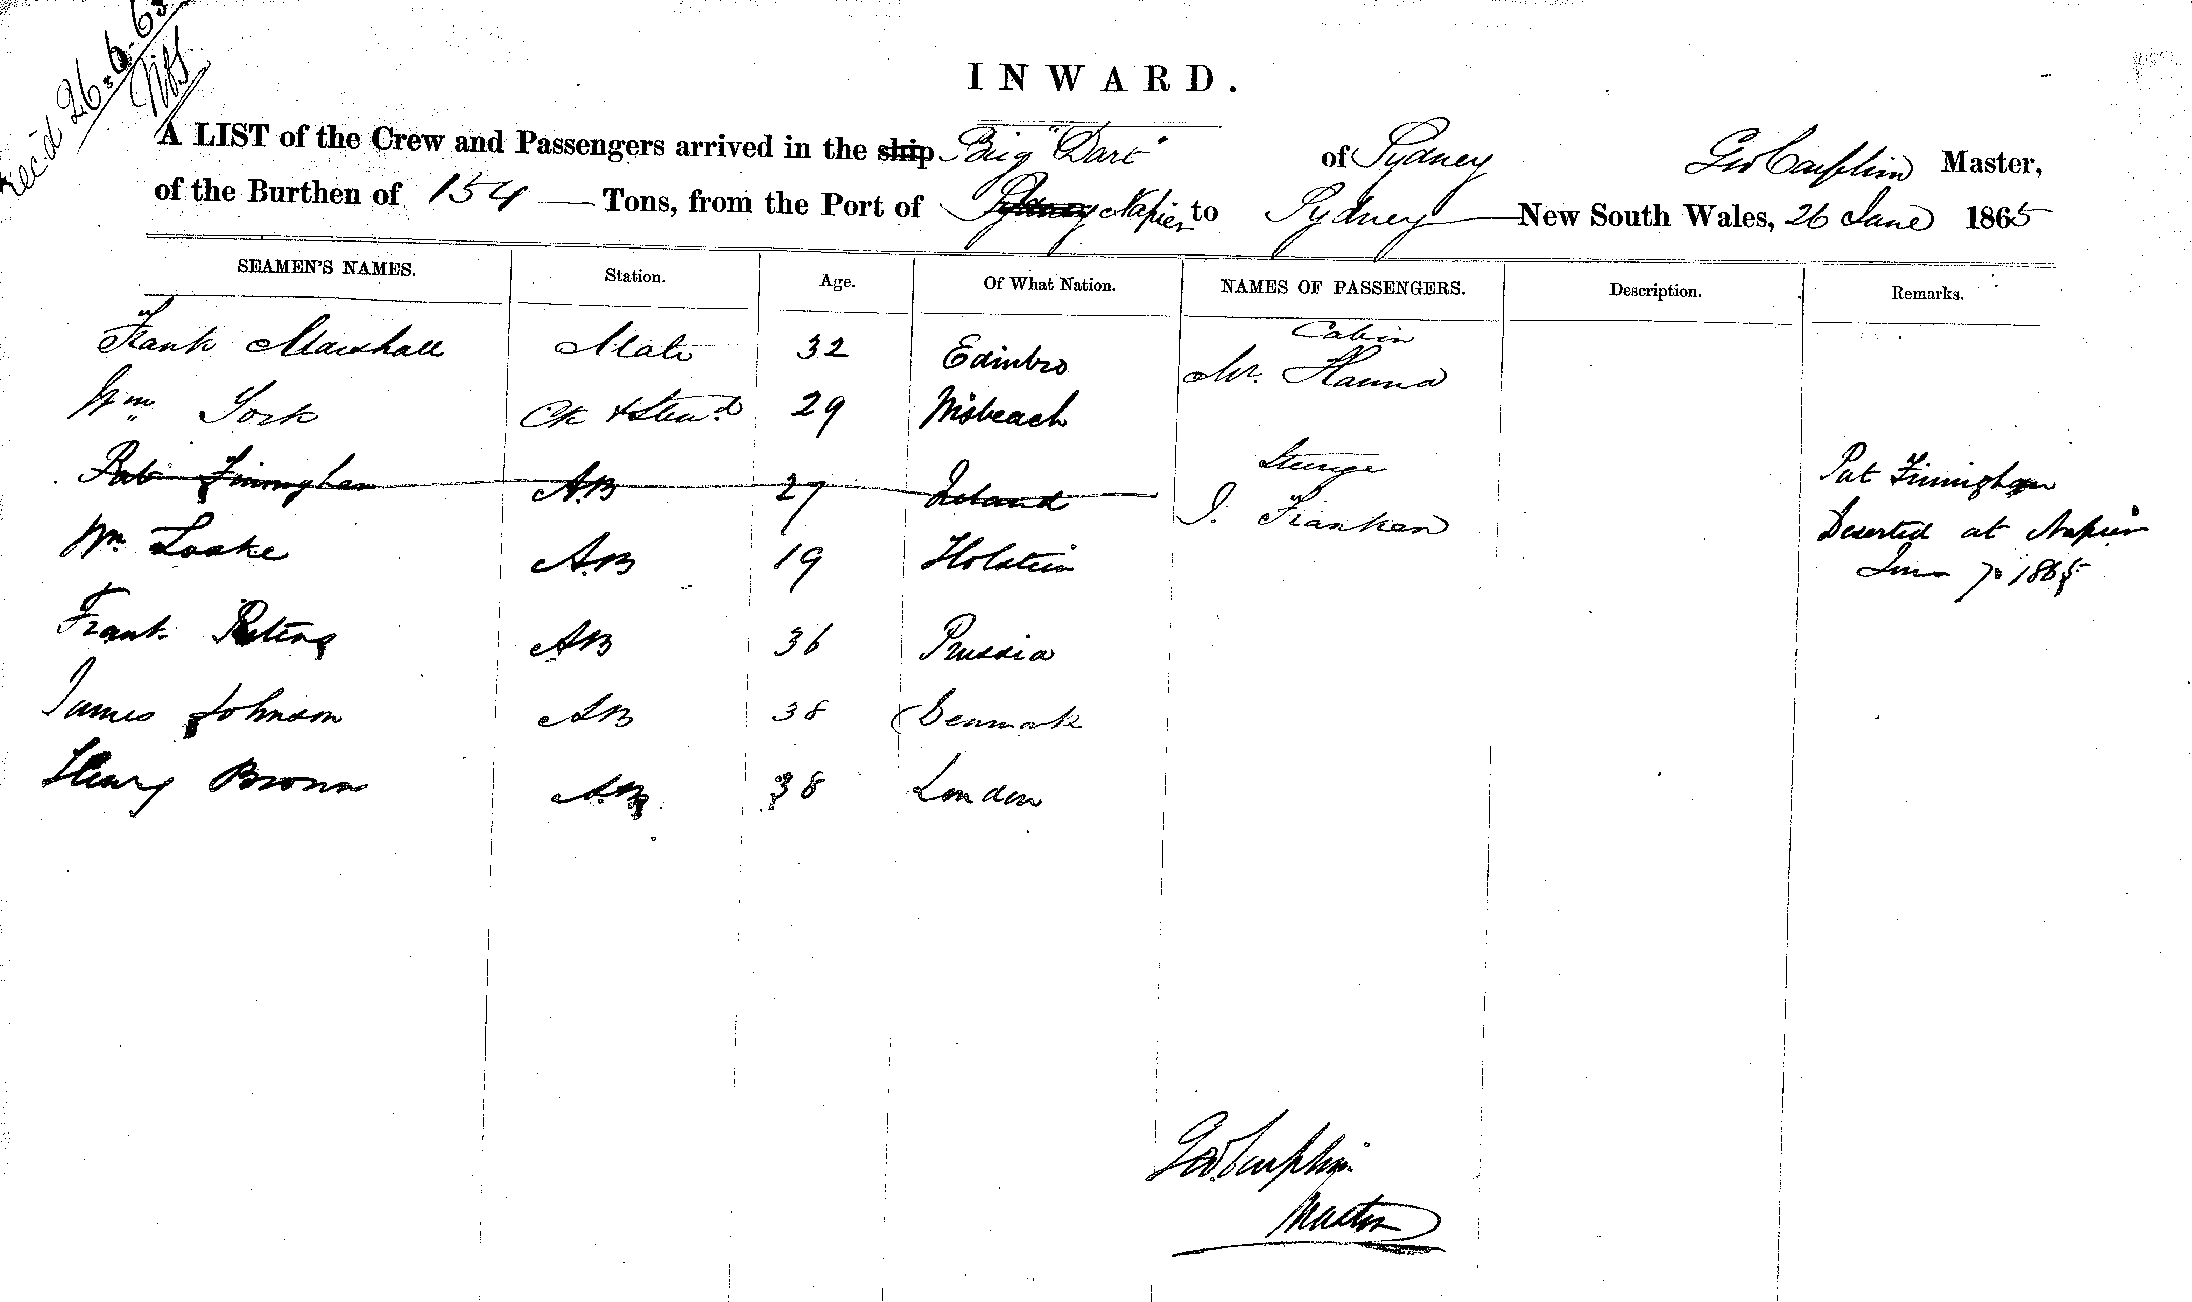 Rec'd 26.6.65
INWARD.
A LIST of the Crew and Passengers arrived in the ship Brig "Dart" of Sydney Geo Master,
of the Burthen of 154 Tons, from the Port of Sydney Napier to Sydney New South Wales, 26 June 1865
SEAMEN'S NAMES. Station. Age. Of What Nation. NAMES OF PASSENGERS. Description. Remarks.
Cabin
Frank Marshall Mate 32 Edinbro Mr. Hanna
Wm York Ck & Stewd 29 Wisbeach
Steerage
Pat Finnighan AB 27 Ireland J. Franken Pat Finnighan
Deserted at Napier
Wm Laake AB 19 Holstein June 7 1865
Frank Peters AB 36 Prussia
James Johnson AB 38 Denmark
Henry Brown AB 38 London
Geo
Master